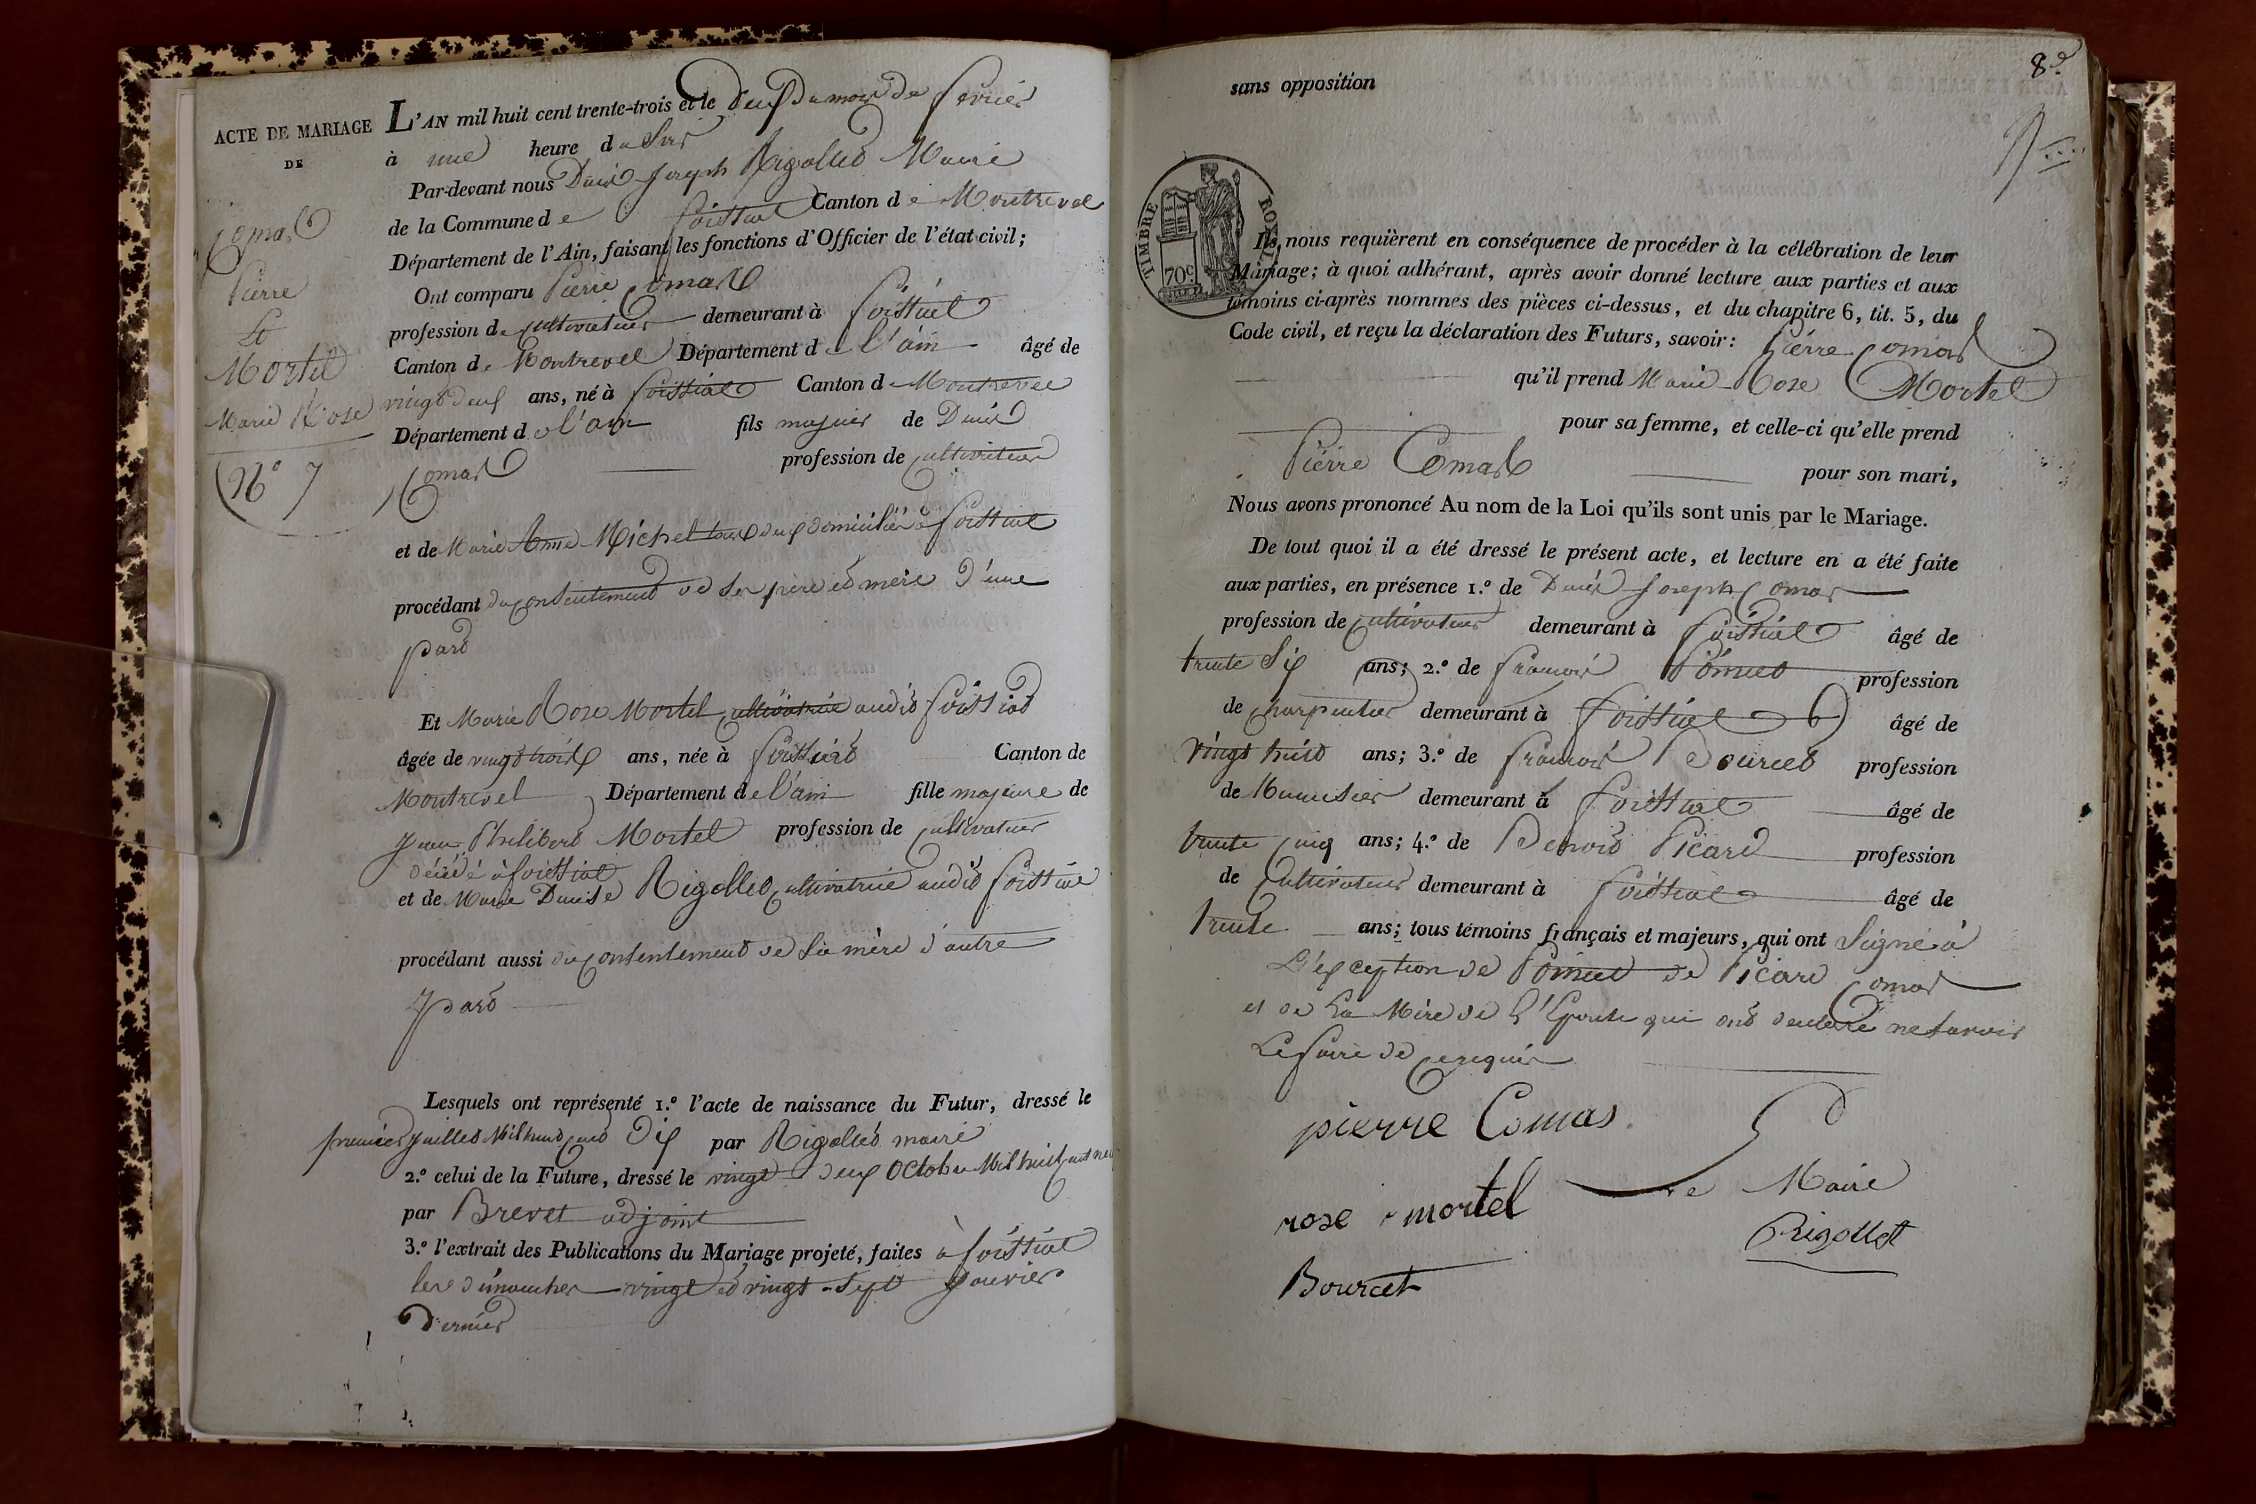 ACTE DE MARIAGE
DE
Comas
Pierre
Et
Mortel
Marie Rose
N° 7
L'AN mil huit cent trente-trois et le deux du mois de fevrier
à une heure du Soir
Par-devant nous Denis Joseph Rigollet Maire
de la Commune de foissiat Canton de Montrevel
Département de l'Ain, faisant les fonctions d'Officier de l'état civil;
Ont comparu Pierre Comas
profession de cultivateur demeurant à foissiat
Canton de Montrevel Département de l'ain âgé de
vingt deux ans, né à foissiat Canton de Montrevel
Département de l'ain fils majeur de Denis
Comas profession de cultivateur
et de Marie Anne Michel tous deux domiciliés à foissiat
procédant du consentement de ses père et mère d'une
part
Et Marie Rose Mortel cultivatrice audit foissiat
âgée de vingt trois ans, née à foissiat Canton de
Montrevel Département de l'ain fille majeure de
Jean Philibert Mortel profession de cultivateur
décédé à foissiat
et de Marie Denise Rigollet cultivatrice audit foissiat
procédant aussi du consentement de Sa mère d'autre
part
Lesquels ont représenté 1.° l'acte de naissance du Futur, dressé le
premier juillet Mil huit cent dix par Rigollet maire
2.° celui de la Future, dressé le vingt deux Octobre Mil huit cent neuf
par Brevet adjoint
3.° l'extrait des Publications du Mariage projeté, faites à foissiat
les dimanches vingt et vingt-sept janvier
dernier
8.e
sans opposition
TIMBRE ROYAL
70c
Ils nous requièrent en conséquence de procéder à la célébration de leur
Mariage; à quoi adhérant, après avoir donné lecture aux parties et aux
témoins ci-après nommés des pièces ci-dessus, et du chapitre 6, tit. 5, du
Code civil, et reçu la déclaration des Futurs, savoir: Pierre Comas
qu'il prend Marie Rose Mortel
pour sa femme, et celle-ci qu'elle prend
Pierre Comas pour son mari,
Nous avons prononcé Au nom de la Loi qu'ils sont unis par le Mariage.
De tout quoi il a été dressé le présent acte, et lecture en a été faite
aux parties, en présence 1.° de Denis Joseph Comas
profession de cultivateur demeurant à foissiat âgé de
trente Six ans; 2.° de françois Poncet profession
de charpentier demeurant à foissiat âgé de
vingt huit ans; 3.° de françois Bourcet profession
de Menuisier demeurant à foissiat âgé de
trente cinq ans; 4.° de Benoit Picard profession
de cultivateur demeurant à foissiat âgé de
trente ans; tous témoins français et majeurs, qui ont Signé à
L'exception de Poncet de Picard Comas
et de La Mère de L'Epouse qui ont declaré ne Savoir
Le faire de ce requis
pierre Comas
rose mortel
Le Maire
Rigollet
Bourcet